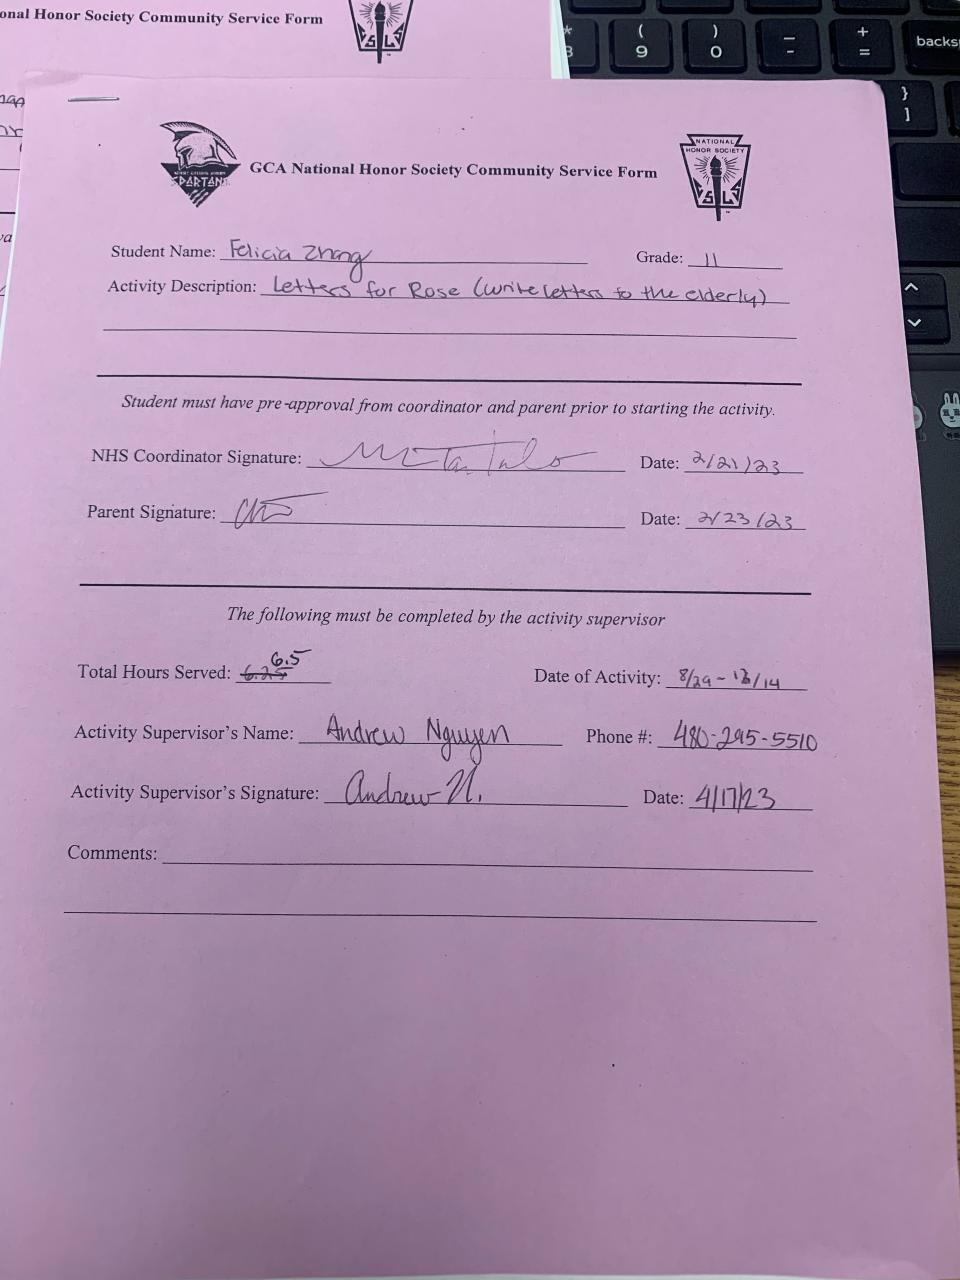 onal Honor Society Community Service Form
( 9
) 0
- -
+ =
backs
} ]
SPARTANS
GCA National Honor Society Community Service Form
NATIONAL HONOR SOCIETY
Student Name: Felicia Zhang Grade: 11
Activity Description: Letters for Rose (write letters to the elderly)
Student must have pre-approval from coordinator and parent prior to starting the activity.
NHS Coordinator Signature: Date: 2/21/23
Parent Signature: Date: 2/23/23
The following must be completed by the activity supervisor
Total Hours Served: 6.25 6.5 Date of Activity: 8/29 - /14
Activity Supervisor's Name: Andrew Nguyen Phone #: 480-295-5510
Activity Supervisor's Signature: Andrew N. Date: 4/17/23
Comments: